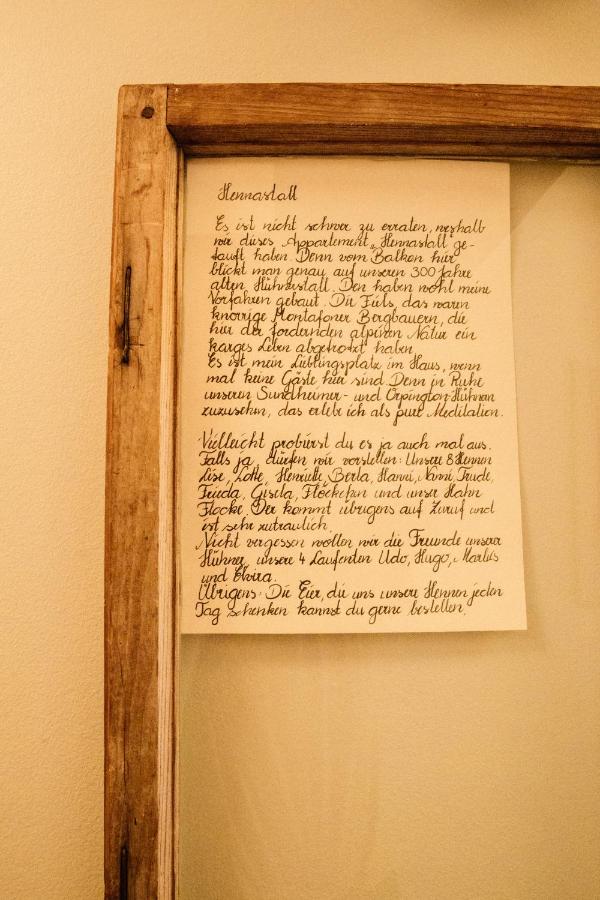 Hennastall
Es ist nicht schwer zu erraten, weshalb
wir dieses Appartement „Hennastall ge-
tauft haben. Denn vom Balkon hier
blickt man genau auf unseren 300 Jahre
alten Hühnerstall. Den haben wohl meine
Vorfahren gebaut. Die Fitls, das waren
knorrige Montafoner Bergbauern, die
hier der fordernden alpinen Natur ein
karges Leben abgetrotzt haben.
Es ist mein Lieblingsplatz im Haus, wenn
mal keine Gäste hier sind. Denn in Ruhe
unseren Sundheimer- und Orpington-Hühnern
zuzusehen, das erleb ich als pure Meditation.
Vielleicht probierst du es ja auch mal aus.
Falls ja, dürfen wir vorstellen: Unsere 8 Hennen
Lise, Lotte, Henriette, Berta, Hanni, Nanni, Trude,
Frieda, Gisela, Flöckchen und unser Hahn
Flocke. Der kommt übrigens auf Zuruf und
ist sehr zutraulich.
Nicht vergessen wollen wir die Freunde unserer
Hühner, unsere 4 Laufenten Udo, Hugo, Marlies
und Elvira.
Übrigens: Die Eier, die uns unsere Hennen jeden
Tag schenken kannst du gerne bestellen.